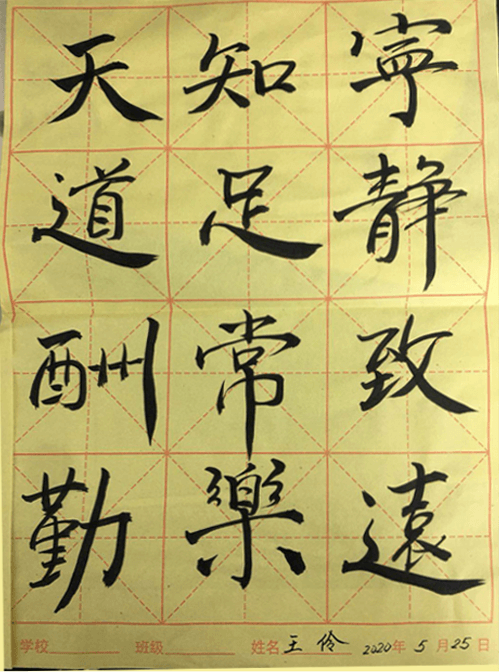 寧靜致遠
知足常樂
天道酬勤
学校 班级 姓名 王伶 2020年5月25日